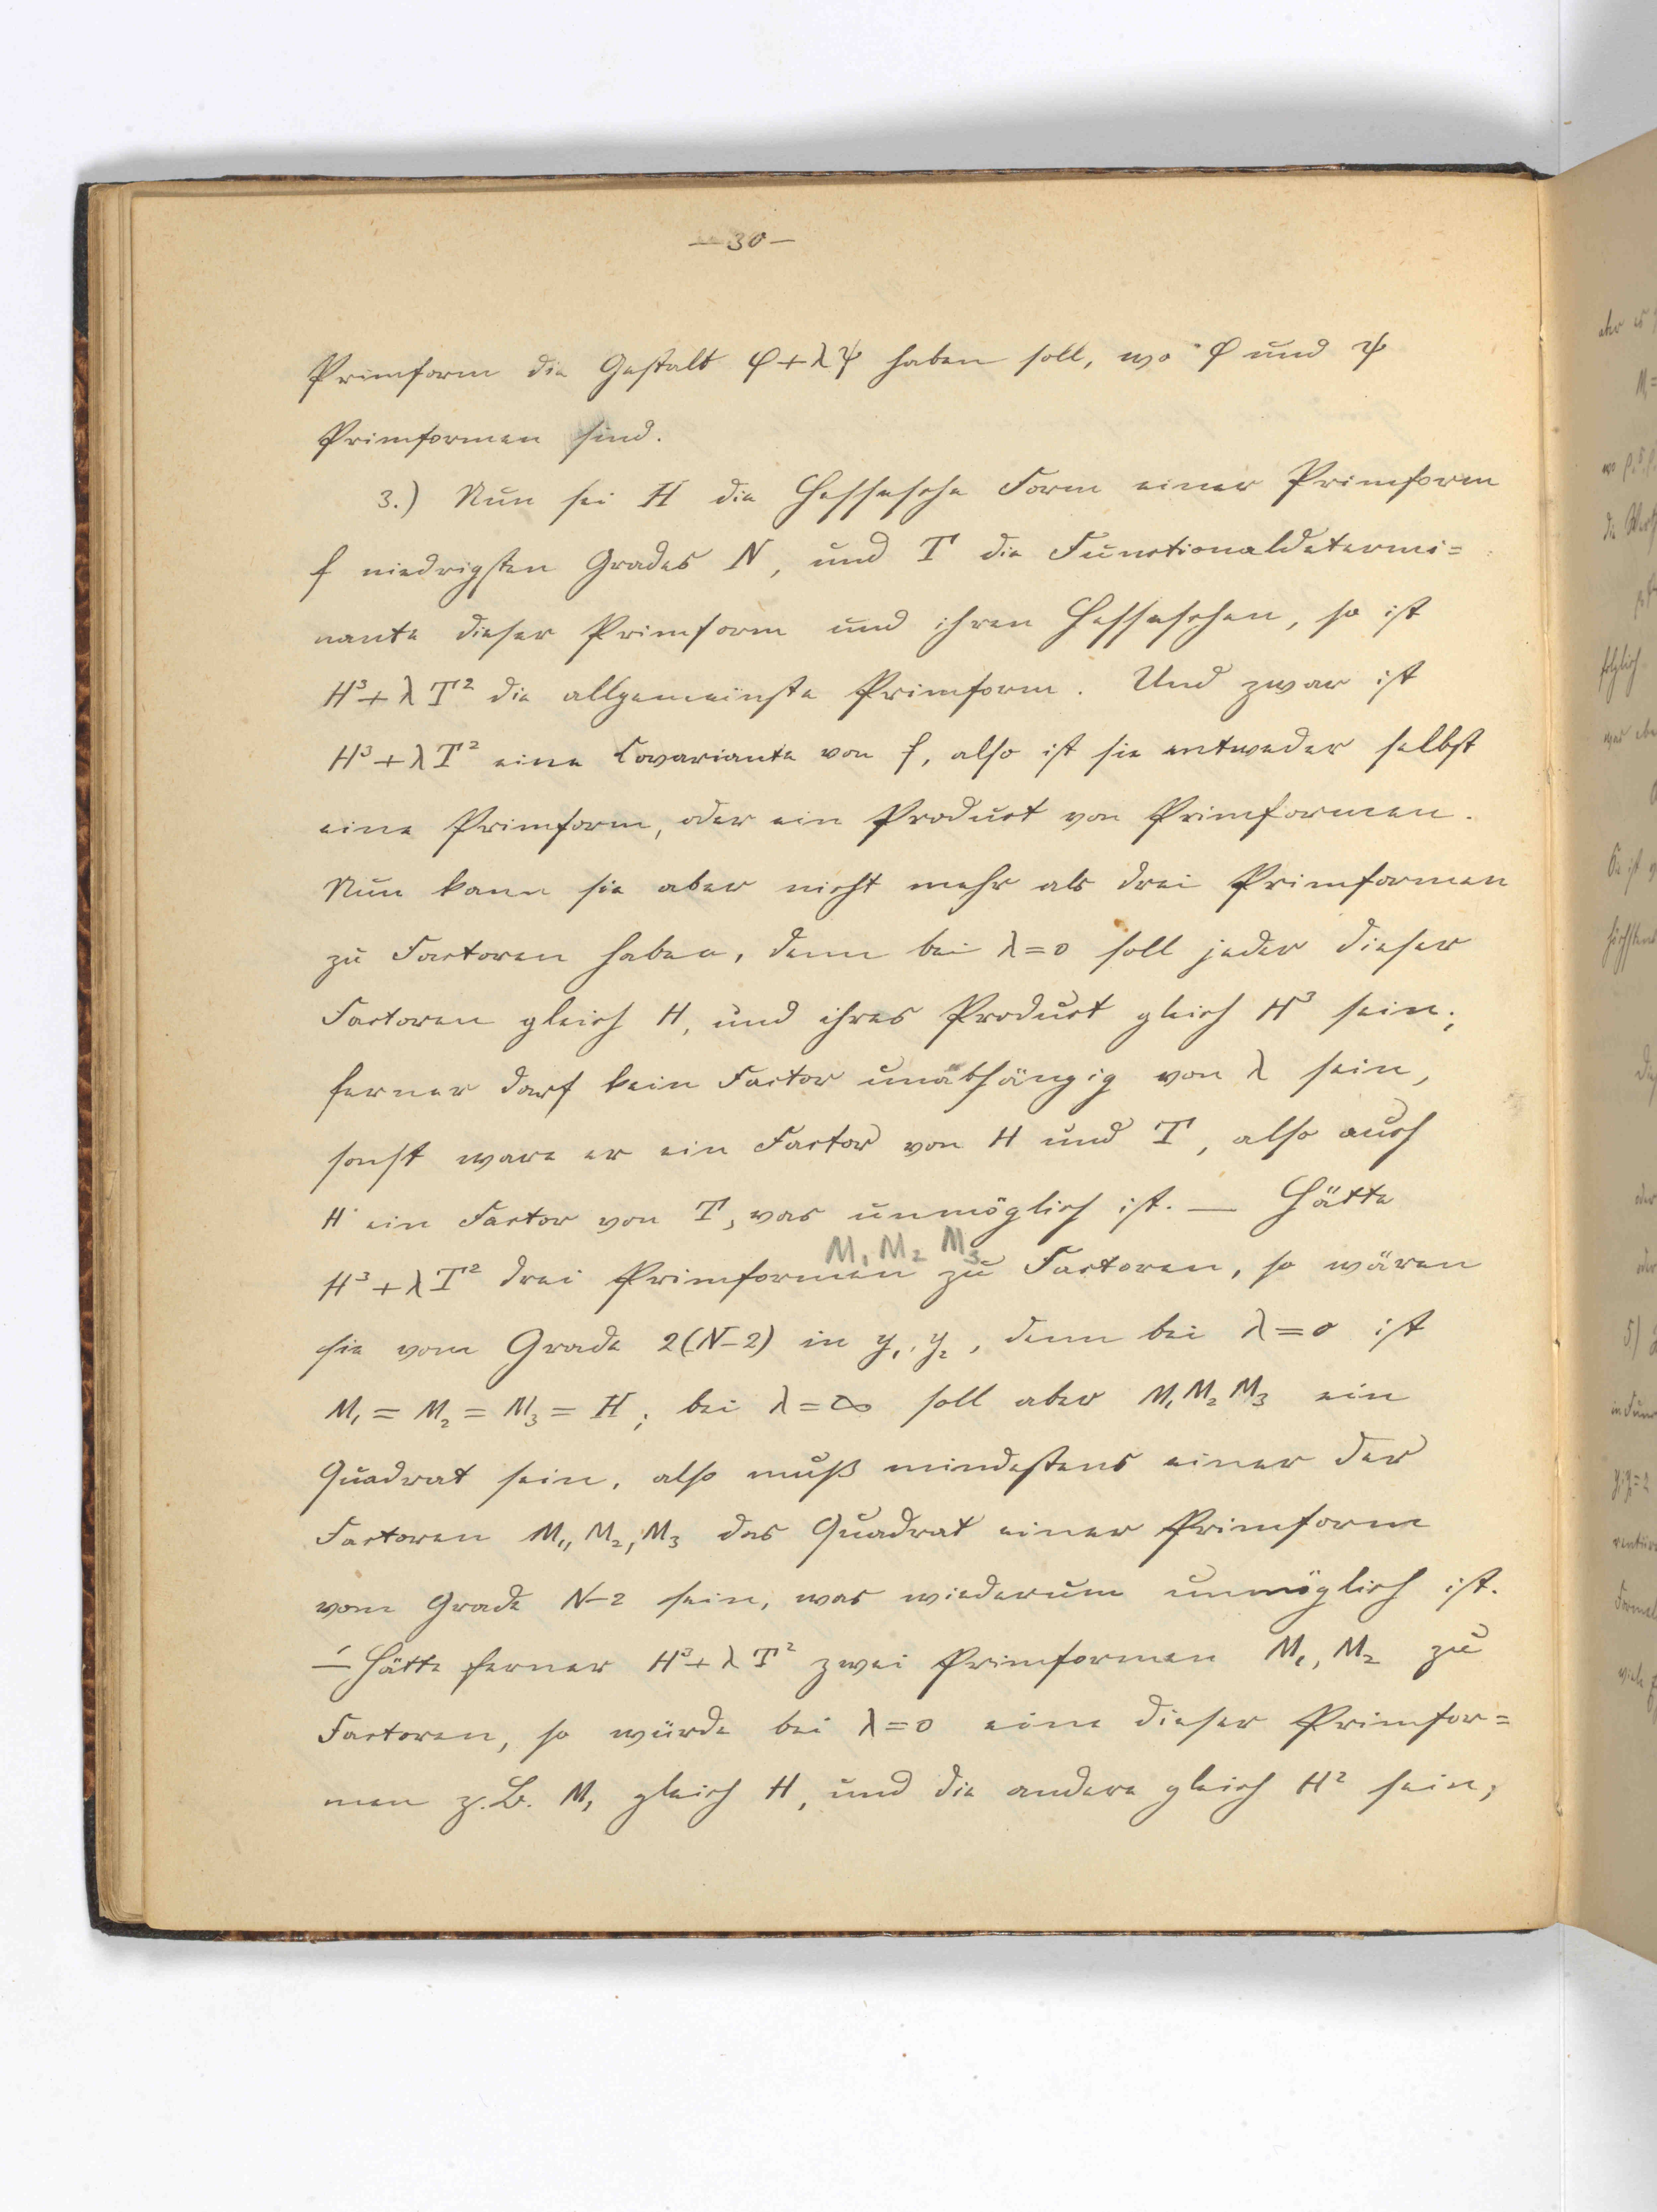 — 30 —
Primform die Gestalt φ + λψ haben soll, wo φ und ψ
Primformen sind.
3.) Nun sei H die Hessesche Form einer Primform
f niedrigsten Grades N, und T die Functionaldetermi=
nante dieser Primform und ihren Hesseschen, so ist
H³ + λT² die allgemeinste Primform. Und zwar ist
H³ + λT² eine Covariante von f, also ist sie entweder selbst
eine Primform, oder ein Product von Primformen.
Nun kann sie aber nicht mehr als drei Primformen
zu Factoren haben, denn bei λ=0 soll jeder dieser
Factoren gleich H, und ihres Product gleich H³ sein;
ferner darf kein Factor unabhängig von λ sein,
sonst ware er ein Factor von H und T, also auch
H ein Factor von T, was unmöglich ist. — Hätte
M₁ M₂ M₃
H³ + λT² drei Primformen zu Factoren, so wären
sie vom Grade 2(N-2) in y₁, y₂, denn bei λ=0 ist
M₁ = M₂ = M₃ = H; bei λ=∞ soll aber M₁M₂M₃ ein
Quadrat sein, also muß mindestens einer der
Factoren M₁, M₂, M₃ das Quadrat einer Primform
vom Grade N-2 sein, was wiederum unmöglich ist.
— Hätte ferner H³ + λT² zwei Primformen M₁, M₂ zu
Factoren, so würde bei λ=0 eine dieser Primfor=
men z.B. M₁ gleich H, und die andere gleich H² sein;